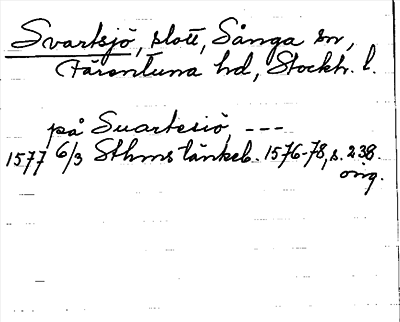 Svartsjö, slott, Sånga sn,
Färentuna hd, Stockh. l.
på Suartesiö, ---
1577 6/3 Sthms tänkeb. 1576-78, s. 238.
orig.